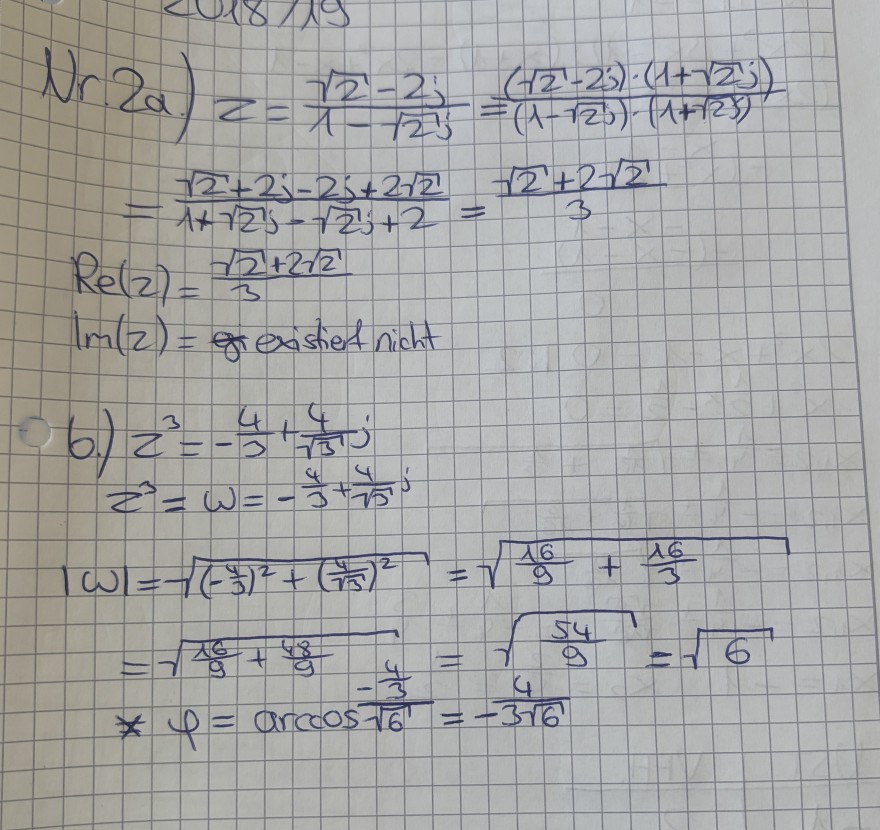 2018/19
Nr. 2a.) z = (√2 - 2j)/(1 - √2j) = ((√2 - 2j)·(1 + √2j))/((1 - √2j)·(1 + √2j))
= (√2 + 2j - 2j + 2√2)/(1 + √2j - √2j + 2) = (√2 + 2√2)/3
Re(z) = (√2 + 2√2)/3
Im(z) = existiert nicht
b.) z³ = -4/3 + 4/√3 j
z³ = w = -4/3 + 4/√3 j
|w| = √((-4/3)² + (4/√3)²) = √(16/9 + 16/3)
= √(16/9 + 48/9) = √(54/9) = √6
* φ = arccos (-4/3)/√6 = -4/(3√6)